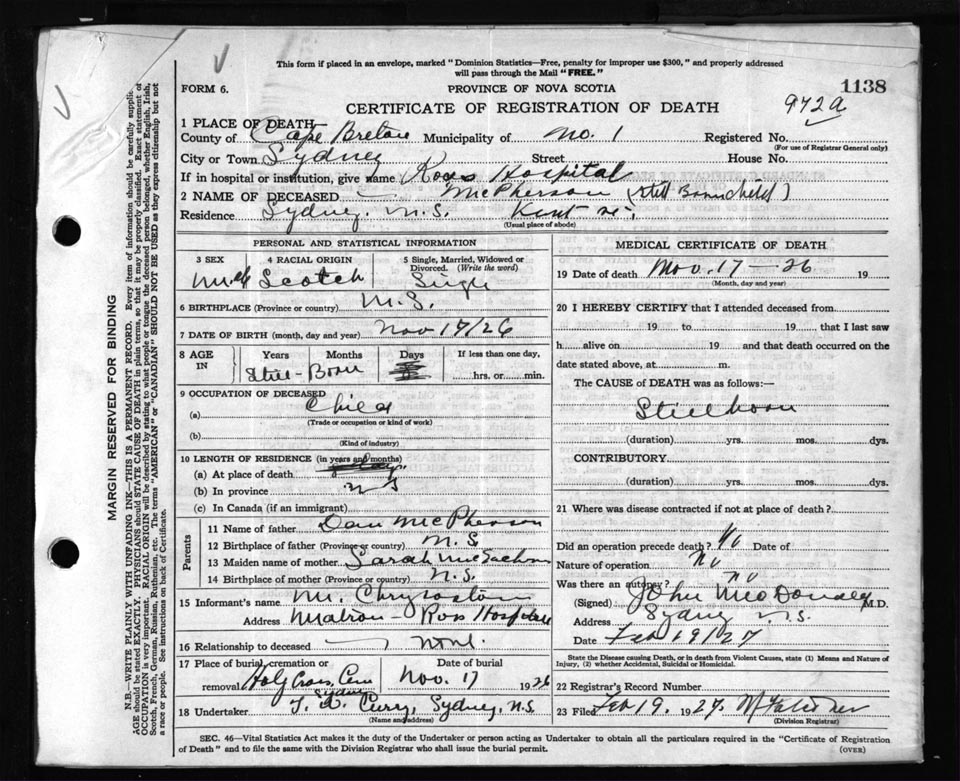 This form if placed in an envelope, marked "Dominion Statistics—Free, penalty for improper use $300," and properly addressed
will pass through the Mail "FREE."
FORM 6.
PROVINCE OF NOVA SCOTIA
1138
CERTIFICATE OF REGISTRATION OF DEATH
972a
1 PLACE OF DEATH—
County of Cape Breton Municipality of No. 1 Registered No.
(For use of Registrar General only)
City or Town Sydney Street House No.
If in hospital or institution, give name Ross Hospital
2 NAME OF DECEASED — McPherson (Still Born child)
Residence Sydney, N.S. Kent St.
(Usual place of abode)
PERSONAL AND STATISTICAL INFORMATION
3 SEX 4 RACIAL ORIGIN 5 Single, Married, Widowed or
Divorced. (Write the word)
Male Scotch Single
6 BIRTHPLACE (Province or country) N.S.
7 DATE OF BIRTH (month, day and year) Nov 17/26
8 AGE IN Years Months Days If less than one day,
Still-Born hrs. or min.
9 OCCUPATION OF DECEASED
(a) Child
(Trade or occupation or kind of work)
(b)
(Kind of industry)
10 LENGTH OF RESIDENCE (in years and months)
(a) At place of death
(b) In province N S
(c) In Canada (if an immigrant)
Parents
11 Name of father Dan McPherson
12 Birthplace of father (Province or country) N.S.
13 Maiden name of mother Sarah McEachern
14 Birthplace of mother (Province or country) N.S.
15 Informant's name Chrysostom
Address Matron - Ross Hospital
16 Relationship to deceased None
17 Place of burial, cremation or Date of burial
removal Holy Cross Cem Sydney Nov. 17 1926
18 Undertaker Curry, Sydney, N.S.
(Name and address)
MEDICAL CERTIFICATE OF DEATH
19 Date of death Nov. 17 - 26 19
(Month, day and year)
20 I HEREBY CERTIFY that I attended deceased from
19 to 19 , that I last saw
h alive on 19 and that death occurred on the
date stated above, at m.
The CAUSE of DEATH was as follows:—
Stillborn
(duration) yrs. mos. dys.
CONTRIBUTORY
(duration) yrs. mos. dys.
21 Where was disease contracted if not at place of death?
Did an operation precede death? No Date of
Nature of operation No
Was there an autopsy? no
(Signed) John McDonald M.D.
Address Sydney N.S.
Date Feb 19/27
State the Disease causing Death, or in death from Violent Causes, state (1) Means and Nature of
Injury, (2) whether Accidental, Suicidal or Homicidal.
22 Registrar's Record Number
23 Filed Feb 19. 1927.
(Division Registrar)
SEC. 46—Vital Statistics Act makes it the duty of the Undertaker or person acting as Undertaker to obtain all the particulars required in the "Certificate of Registration
of Death" and to file the same with the Division Registrar who shall issue the burial permit.
(OVER)
MARGIN RESERVED FOR BINDING
N.B.—WRITE PLAINLY WITH UNFADING INK—THIS IS A PERMANENT RECORD. Every item of information should be carefully supplie.
AGE should be stated EXACTLY. PHYSICIANS should STATE CAUSE OF DEATH in plain terms, so that it may be properly classified. Exact statement of
OCCUPATION is very important. RACIAL ORIGIN will be described by stating to what people or tongue the deceased person belonged, whether English, Irish,
Scotch, French, German, Russian, Ruthenian, etc. The terms "AMERICAN" or "CANADIAN" SHOULD NOT BE USED as they express citizenship but not
a race or people. See instructions on back of Certificate.